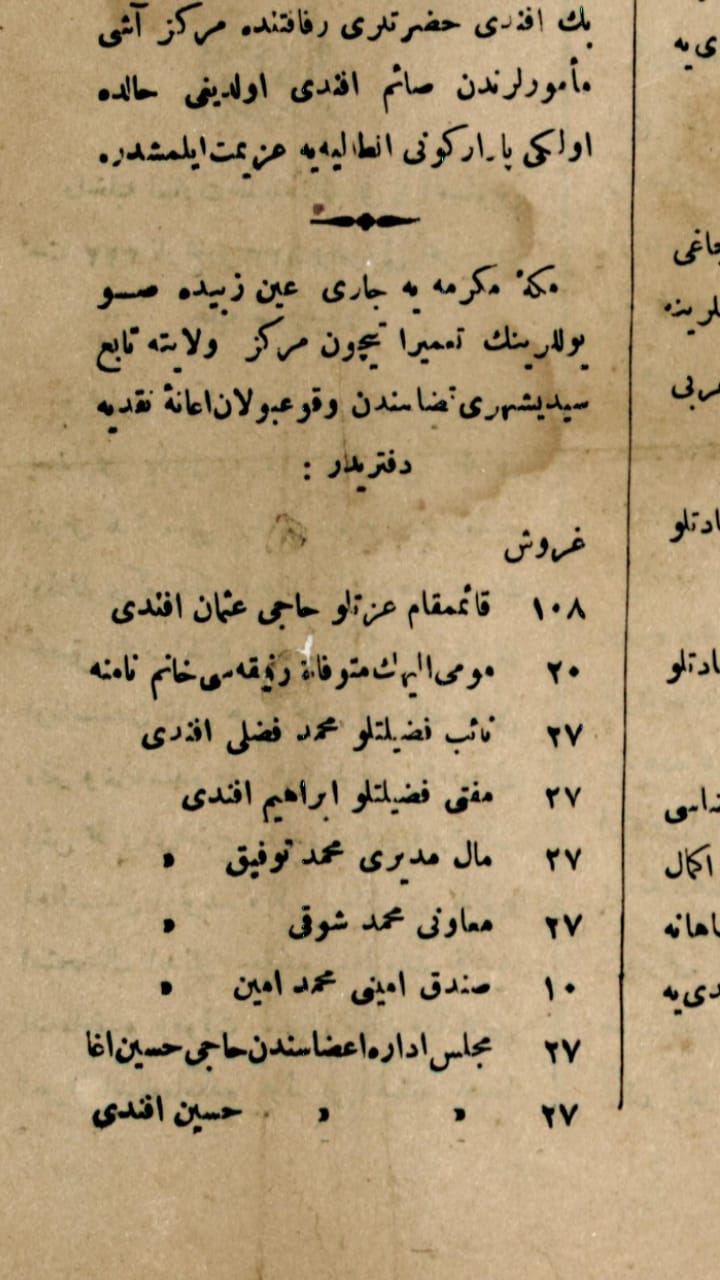 بك افندی حضرتلری رفاقتنده مركز آشی
مأمورلرندن صائم افندی اولدیغی حالده
اولكی پازاركونی انطالیه‌یه عزیمت‌ایلمشدر.
مكهٔ مكرمه یه جاری عین زبیده صو
یوللرینك تعمیرا تیچون مركز ولایته تابع
سیدیشهری قضاسندن وقوعبولان‌اعانهٔ نقدیه
دفتریدر :
غروش
١٠٨ قائممقام عزتلو حاجی عثمان افندی
٢٠ مومی‌الیهك‌متوفاة رفیقه‌سی‌خانم نامنه
٢٧ نائب فضیلتلو محمد فضلی افندی
٢٧ مفتی فضیلتلو ابراهیم افندی
٢٧ مال مدیری محمد توفیق »
٢٧ معاونی محمد شوقی »
١٠ صندق امینی محمد امین »
٢٧ مجلس‌اداره‌اعضاسندن‌حاجی‌حسین‌اغا
٢٧ » » حسین افندی
ی یه
چاغی
لرینه
ربی
ادتلو
ادتلو
اكمال
اهانه
دی‌یه